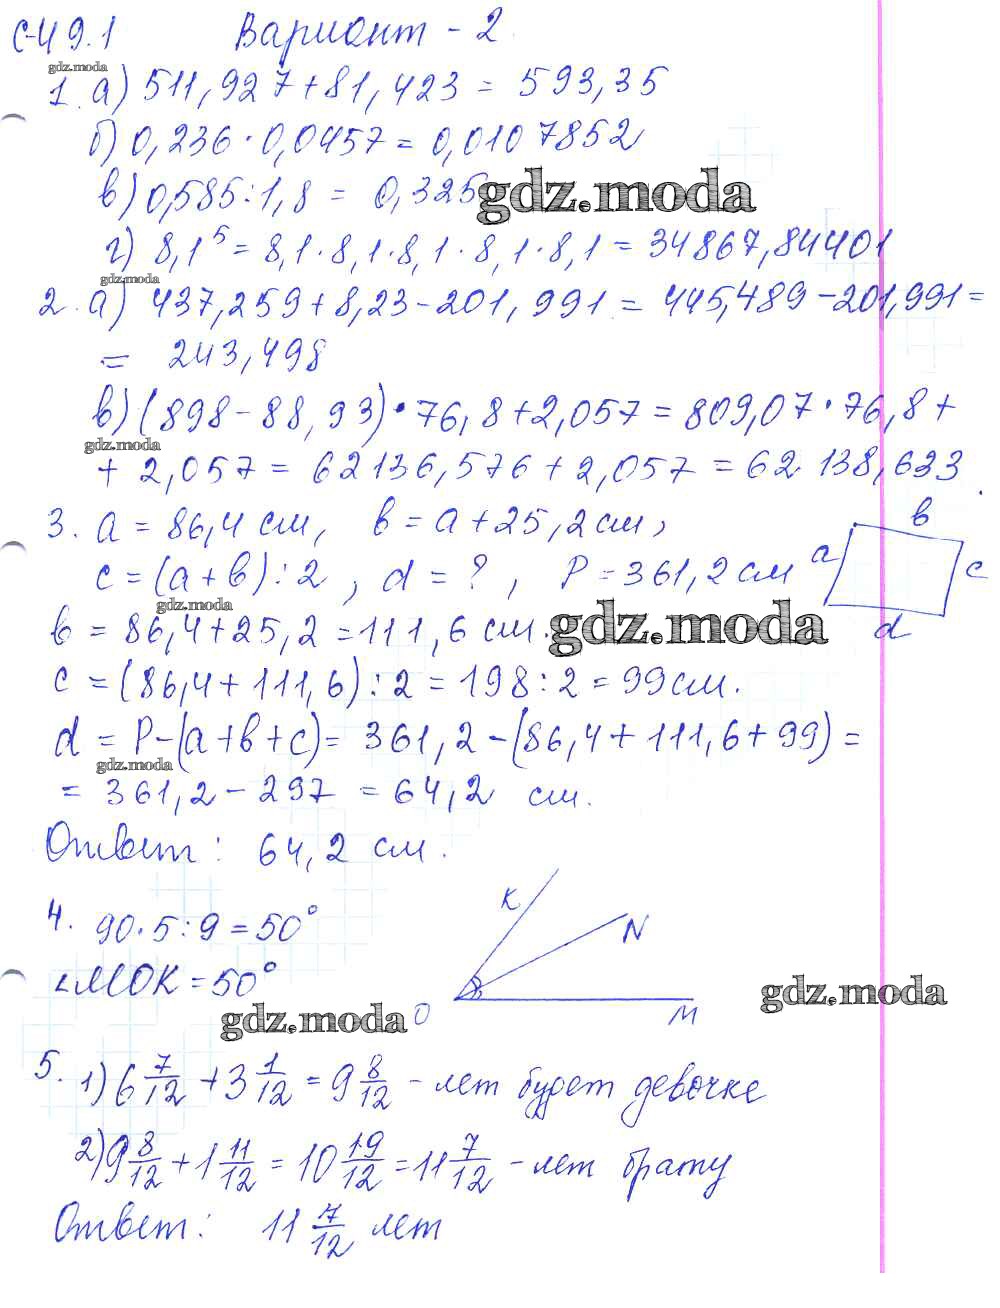 С-49.1 Вариант - 2.
gdz.moda
1. а) 511,927 + 81,423 = 593,35
б) 0,236 · 0,0457 = 0,0107852
в) 0,585 : 1,8 = 0,325 gdz.moda
г) 8,1⁵ = 8,1 · 8,1 · 8,1 · 8,1 · 8,1 = 34867,84401
gdz.moda
2. а) 437,259 + 8,23 - 201,991 = 445,489 - 201,991 =
= 243,498
в) (898 - 88,93) · 76,8 + 2,057 = 809,07 · 76,8 +
gdz.moda
+ 2,057 = 62136,576 + 2,057 = 62 138,633.
3. а = 86,4 см, в = а + 25,2 см,
с = (а + в) : 2, d = ?, P = 361,2 см
a b c d
gdz.moda
в = 86,4 + 25,2 = 111,6 см. gdz.moda
с = (86,4 + 111,6) : 2 = 198 : 2 = 99 см.
d = P - (а + в + с) = 361,2 - (86,4 + 111,6 + 99) =
gdz.moda
= 361,2 - 297 = 64,2 см.
Ответ: 64,2 см.
4. 90 · 5 : 9 = 50°
∠МОК = 50°
К N О М
gdz.moda gdz.moda
5. 1) 6 7/12 + 3 1/12 = 9 8/12 - лет будет девочке
2) 9 8/12 + 1 11/12 = 10 19/12 = 11 7/12 - лет брату
Ответ: 11 7/12 лет